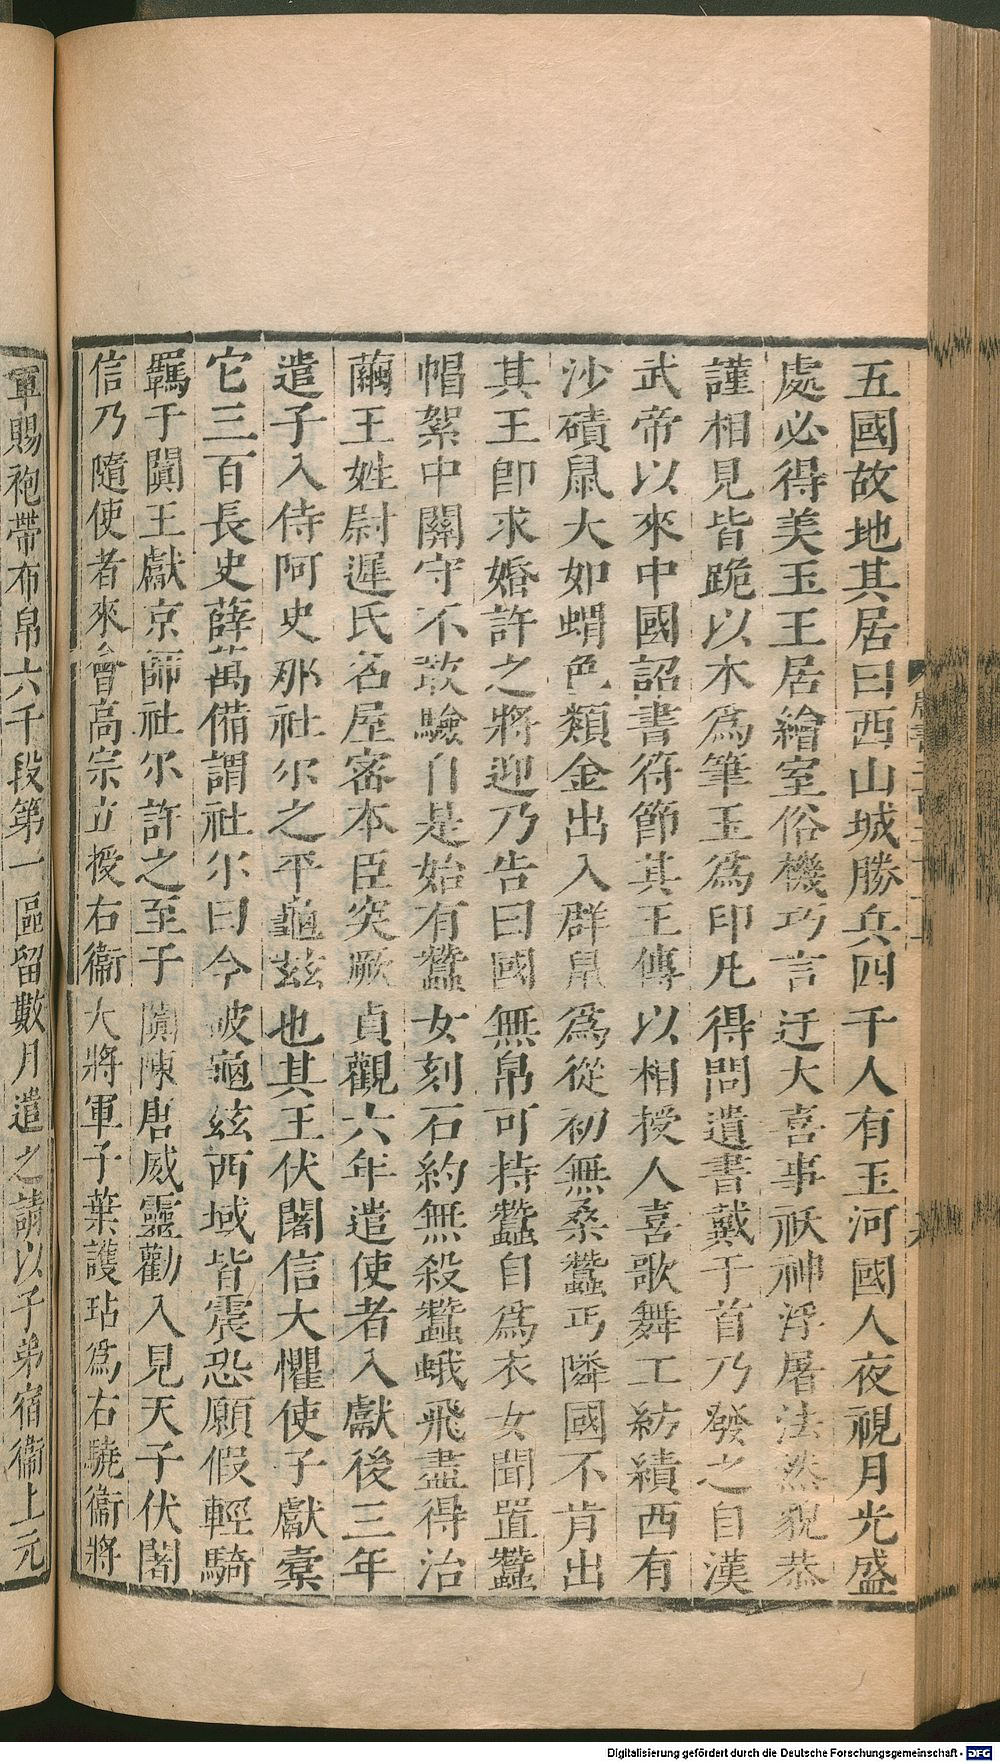 五國故地其居曰西山城勝兵四千人有玉河國人夜視月光盛
處必得美玉王居繪室俗機巧言迂大喜事祆神浮屠法然貌恭
謹相見皆跪以木爲筆玉爲印凡得問遺書戴于首乃發之自漢
武帝以來中國詔書符節其王傳以相授人喜歌舞工紡績西有
沙磧鼠大如蝟色類金出入群鼠爲從初無桑蠶丐隣國不肯出
其王卽求婚許之將迎乃告曰國無帛可持蠶自爲衣女聞置蠶
帽絮中關守不敢驗自是始有蠶女刻石約無殺蠶蛾飛盡得治
繭王姓尉遲氏名屋密本臣突厥貞觀六年遣使者入獻後三年
遣子入侍阿史那社尒之平龜玆也其王伏闍信大懼使子獻槖
它三百長史薛萬備謂社尒曰今破龜玆西域皆震恐願假輕騎
羈于闐王獻京師社尒許之至于闐陳唐威靈勸入見天子伏闍
信乃隨使者來會高宗立授右衞大將軍子葉護玷爲右驍衞將
軍賜袍帶布帛六千段第一區留數月遣之請以子弟宿衞上元
Digitalisierung gefördert durch die Deutsche Forschungsgemeinschaft - DFG